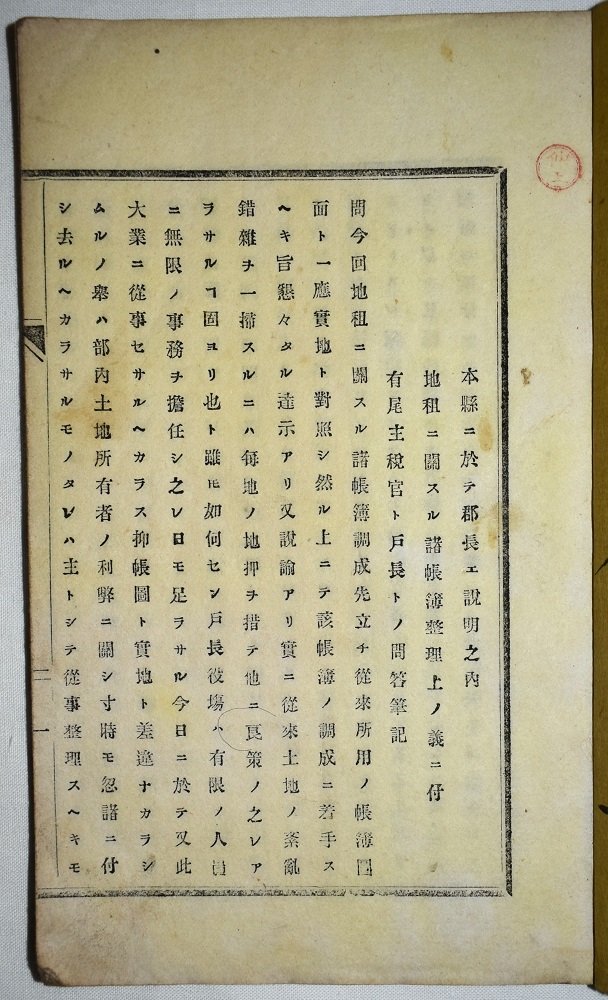 本縣ニ於テ郡長エ說明之内
地租ニ關スル諸帳簿整理上ノ義ニ付
有尾主稅官ト戸長トノ問答筆記
問今回地租ニ關スル諸帳簿調成先立チ從來所用ノ帳簿圖
面ト一應實地ト對照シ然ル上ニテ該帳簿ノ調成ニ着手ス
ヘキ旨懇々タル達示アリ又說諭アリ實ニ從來土地ノ紊亂
錯雜ヲ一掃スルニハ每地ノ地押ヲ措テ他ニ良策ノ之レア
ラサルヿ固ヨリ也ト雖𪜈如何セン戸長役塲ハ有限ノ人員
ニ無限ノ事務ヲ擔任シ之レ日モ足ラサル今日ニ於テ又此
大業ニ從事セサルヘカラス抑帳圖ト實地ト差違ナカラシ
ムルノ舉ハ部內土地所有者ノ利弊ニ關シ寸時モ忽諸ニ付
シ去ルヘカラサルモノタレハ主トシテ從事整理スヘキモ
二
一